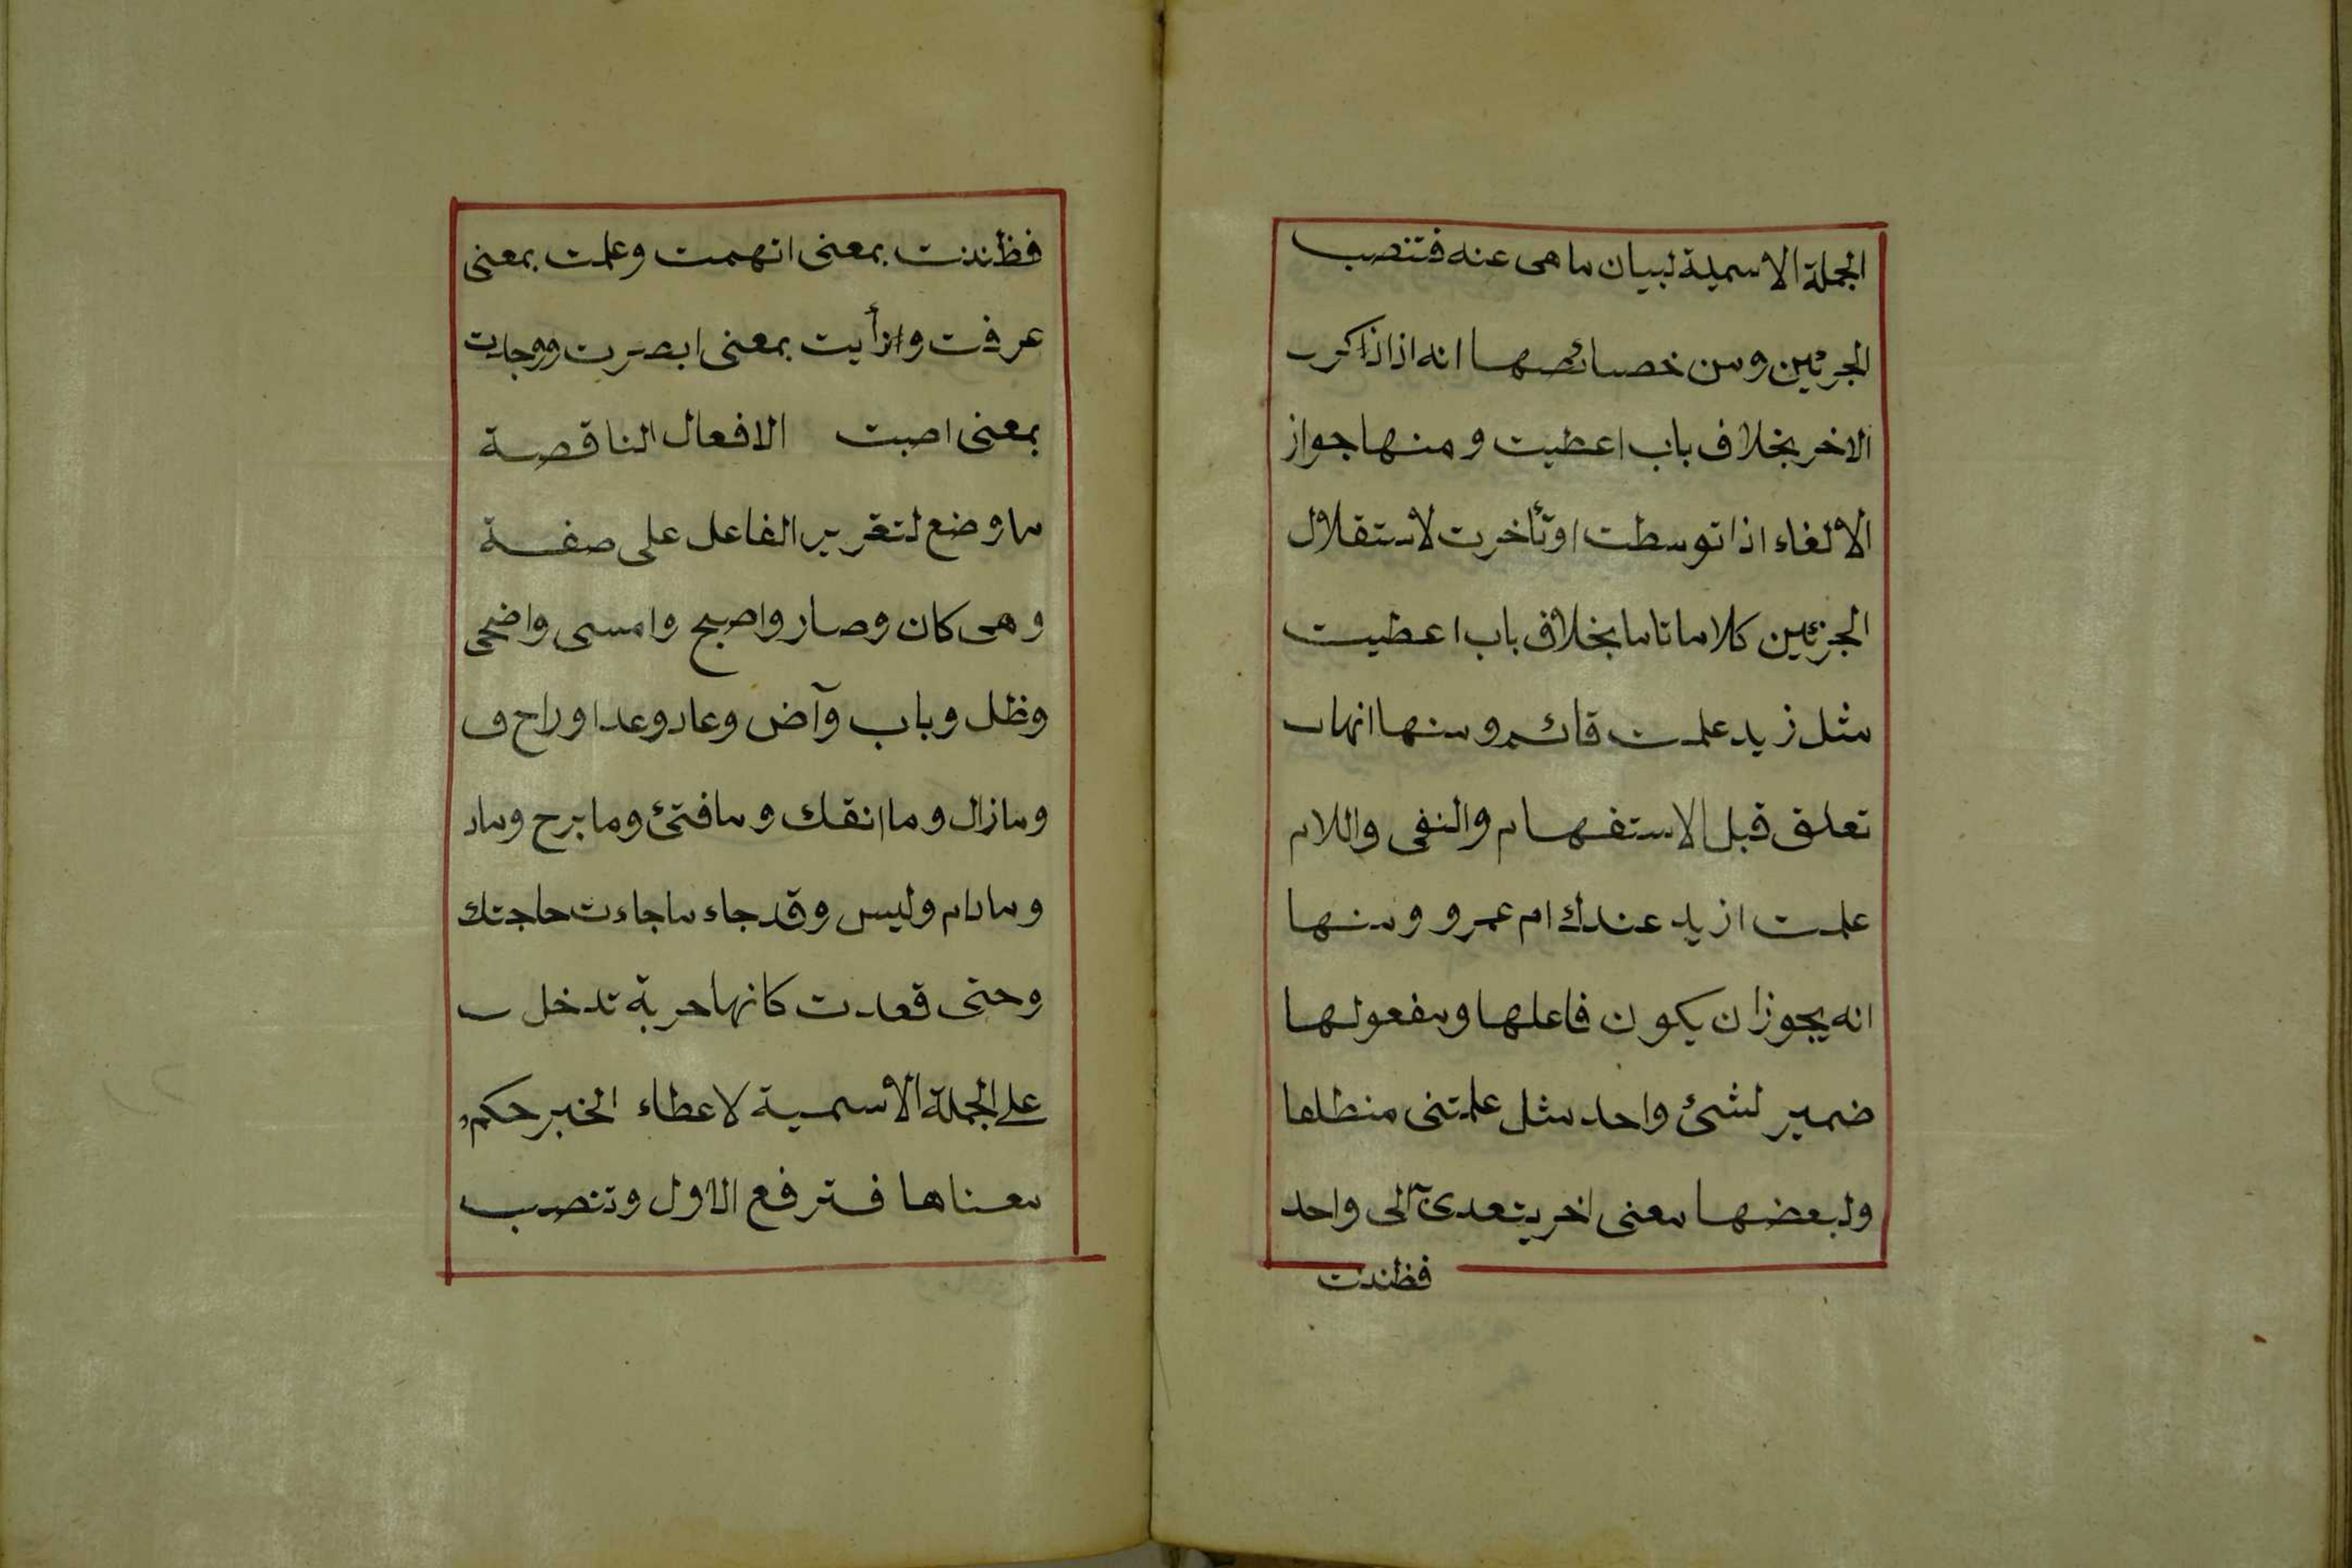 الجملة الاسمية لبيان ما هى عنه فتنصب
الجزئين ومن خصائصها انه اذا ذكر
الاخر بخلاف باب اعطيت ومنها جواز
الالغاء اذا توسطت او تأخرت لاستقلال
الجزئين كلاما تاما بخلاف باب اعطيت
مثل زيد علمت قائم ومنها انها
تعلق قبل الاستفهام والنفى واللام
علمت ازيد عندك ام عمرو ومنها
انه يجوز ان يكون فاعلها ومفعولها
ضمير لشئ واحد مثل علمتنى منطلقا
ولبعضها معنى اخر يتعدى الى واحد
فظننت
فظننت بمعنى اتهمت وعلمت بمعنى
عرفت ورأيت بمعنى ابصرت ووجدت
بمعنى اصبت الافعال الناقصة
ما وضع لتقرير الفاعل على صفة
وهى كان وصار واصبح وامسى واضحى
وظل وباب وآض وعاد وعدا وراح و
ومازال وما انفك وما فتئ وما برح وماد
ومادام وليس وقد جاء ما جاءت حاجتك
وحتى قعدت كانها حربة تدخل
على الجملة الأسمية لاعطاء الخبر حكم
معناها فترفع الاول وتنصب